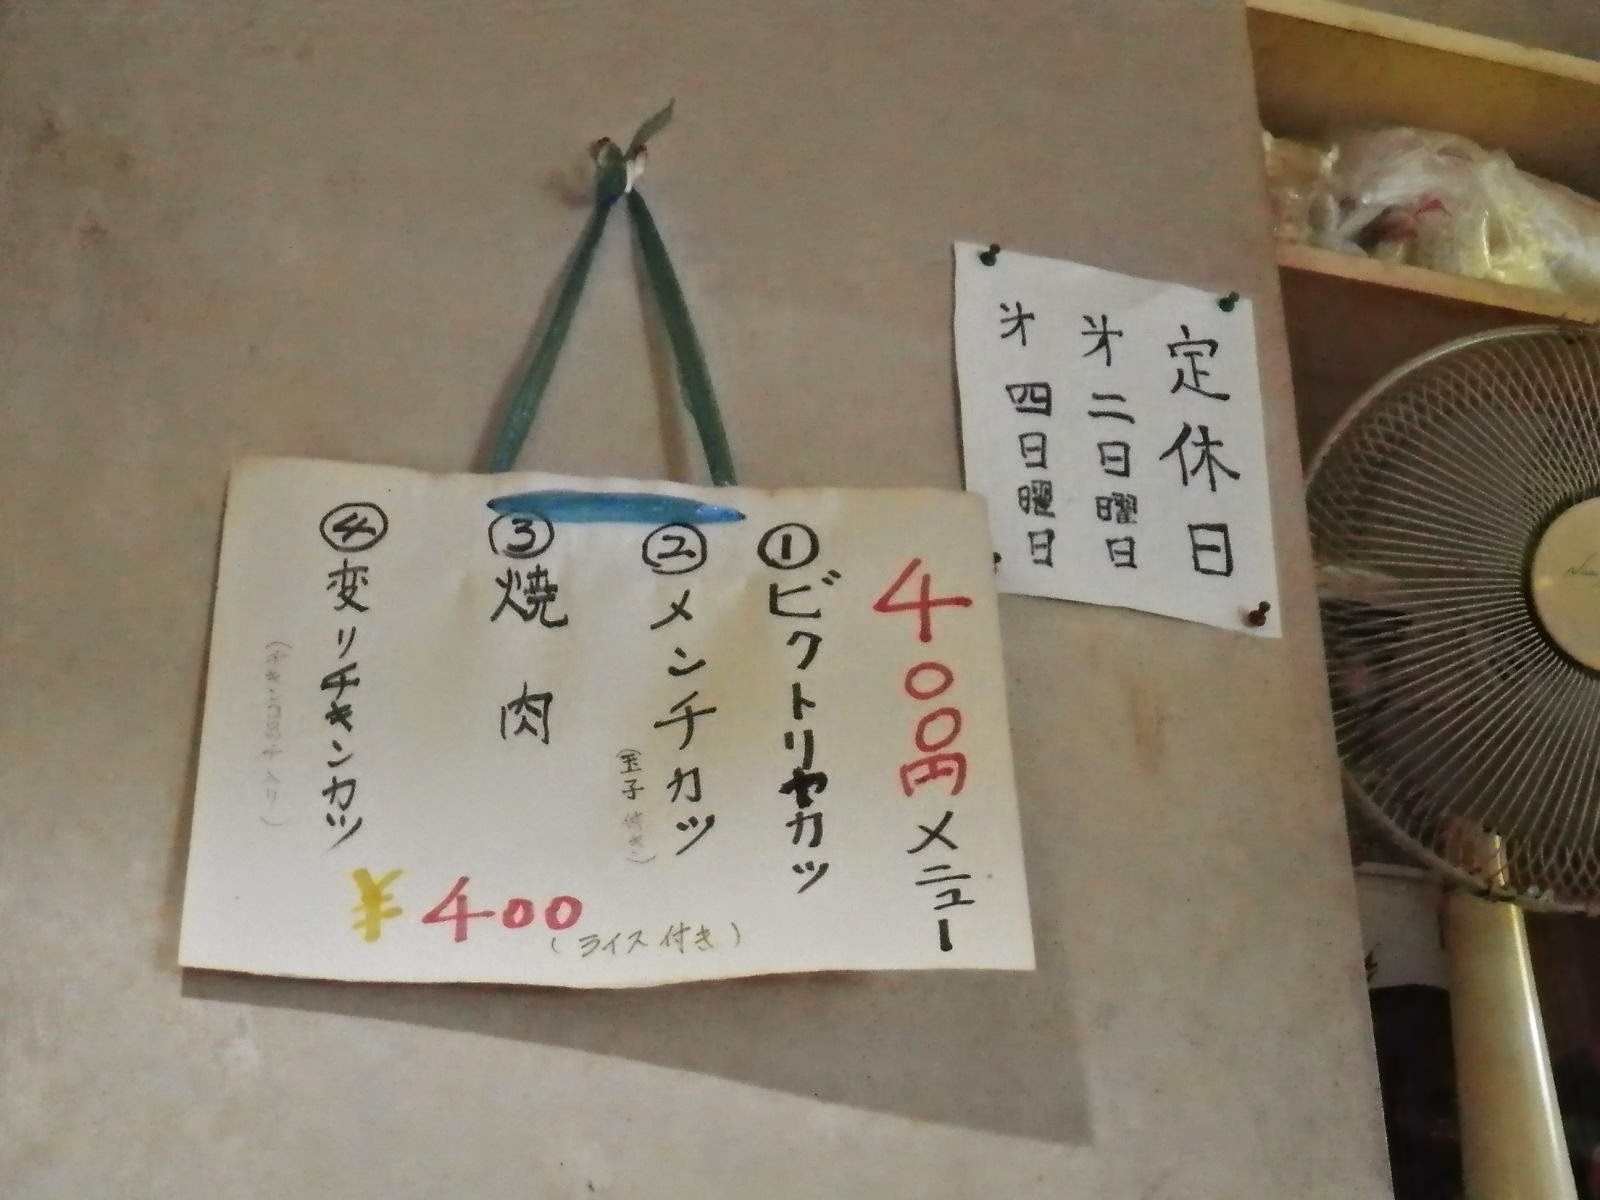 定休日
㐧二日曜日
㐧四日曜日
400円メニュー
①ビクトリヤカツ
②メンチカツ
(玉子付き)
③焼肉
④変リチキンカツ
¥400
(ライス付き)